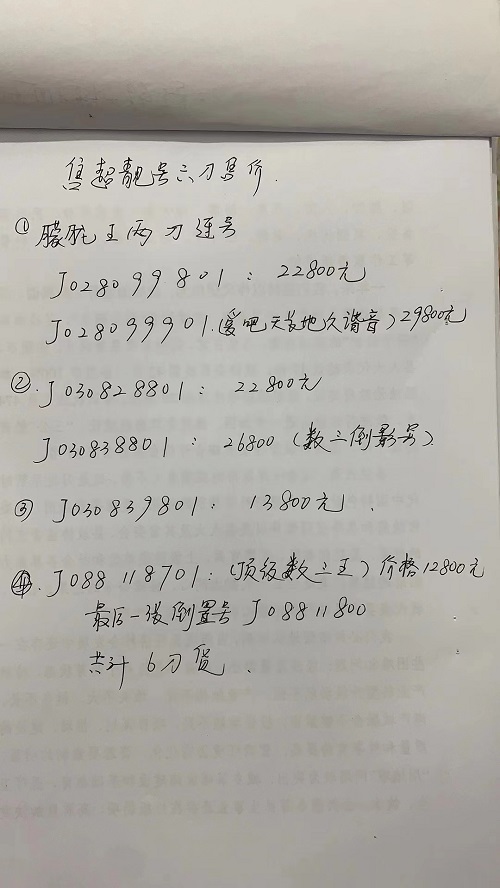 售超靓号六刀售价.
① 朦胧王两刀连号
J028099801: 22800元
J028099901.(爱吧天长地久谐音)29800元
②. J030828801: 22800元
J030838801: 26800(数二倒影号)
③ J030839801: 13800元.
④. J088118701:(顶级数二王)价格12800元
最后一张倒置号 J08811800
共计6刀货.